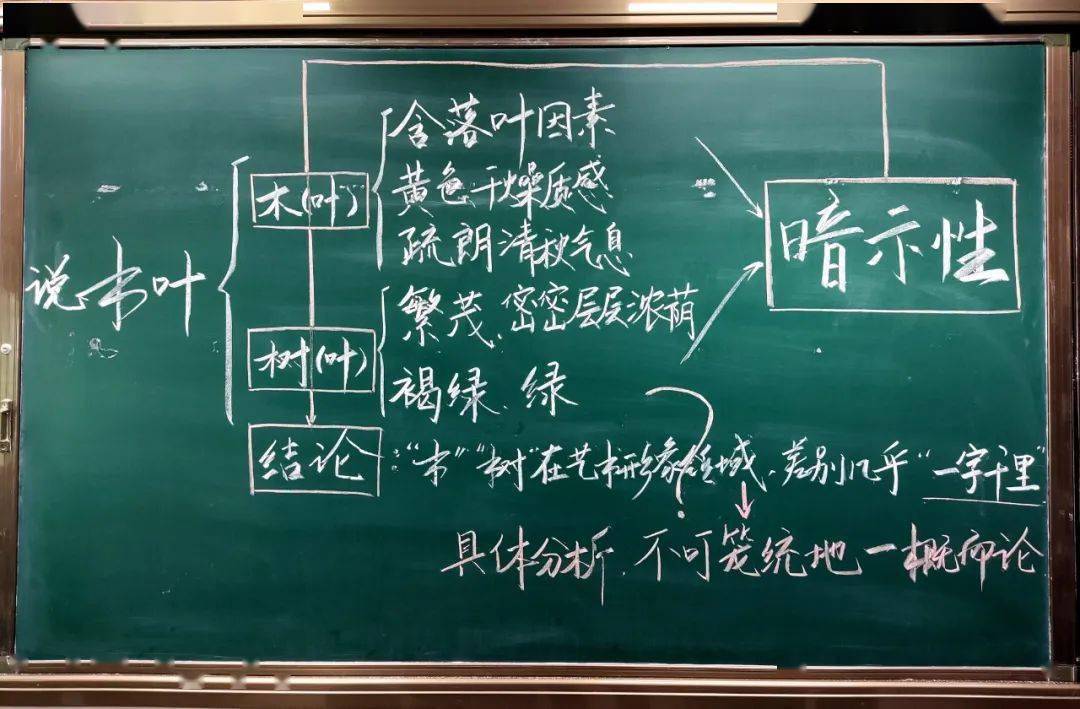 含落叶因素
木(叶)
黄色.干燥质感
暗示性
疏朗清秋气息
说木叶
繁茂、密密层层浓荫
树(叶)
褐绿、绿
结论:"木""树"在艺术形象领域,差别几乎"一字千里"
?
具体分析、不可笼统地一概而论